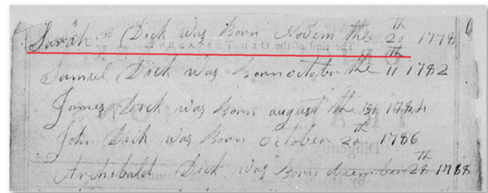 Sarah Dick was born Novem the 20th 1778
Samuel Dick was born october the 11th 1782
James Dick was born august the 31 1784
John Dick was born October 20th 1786
Archibald Dick was born december 28th 1788